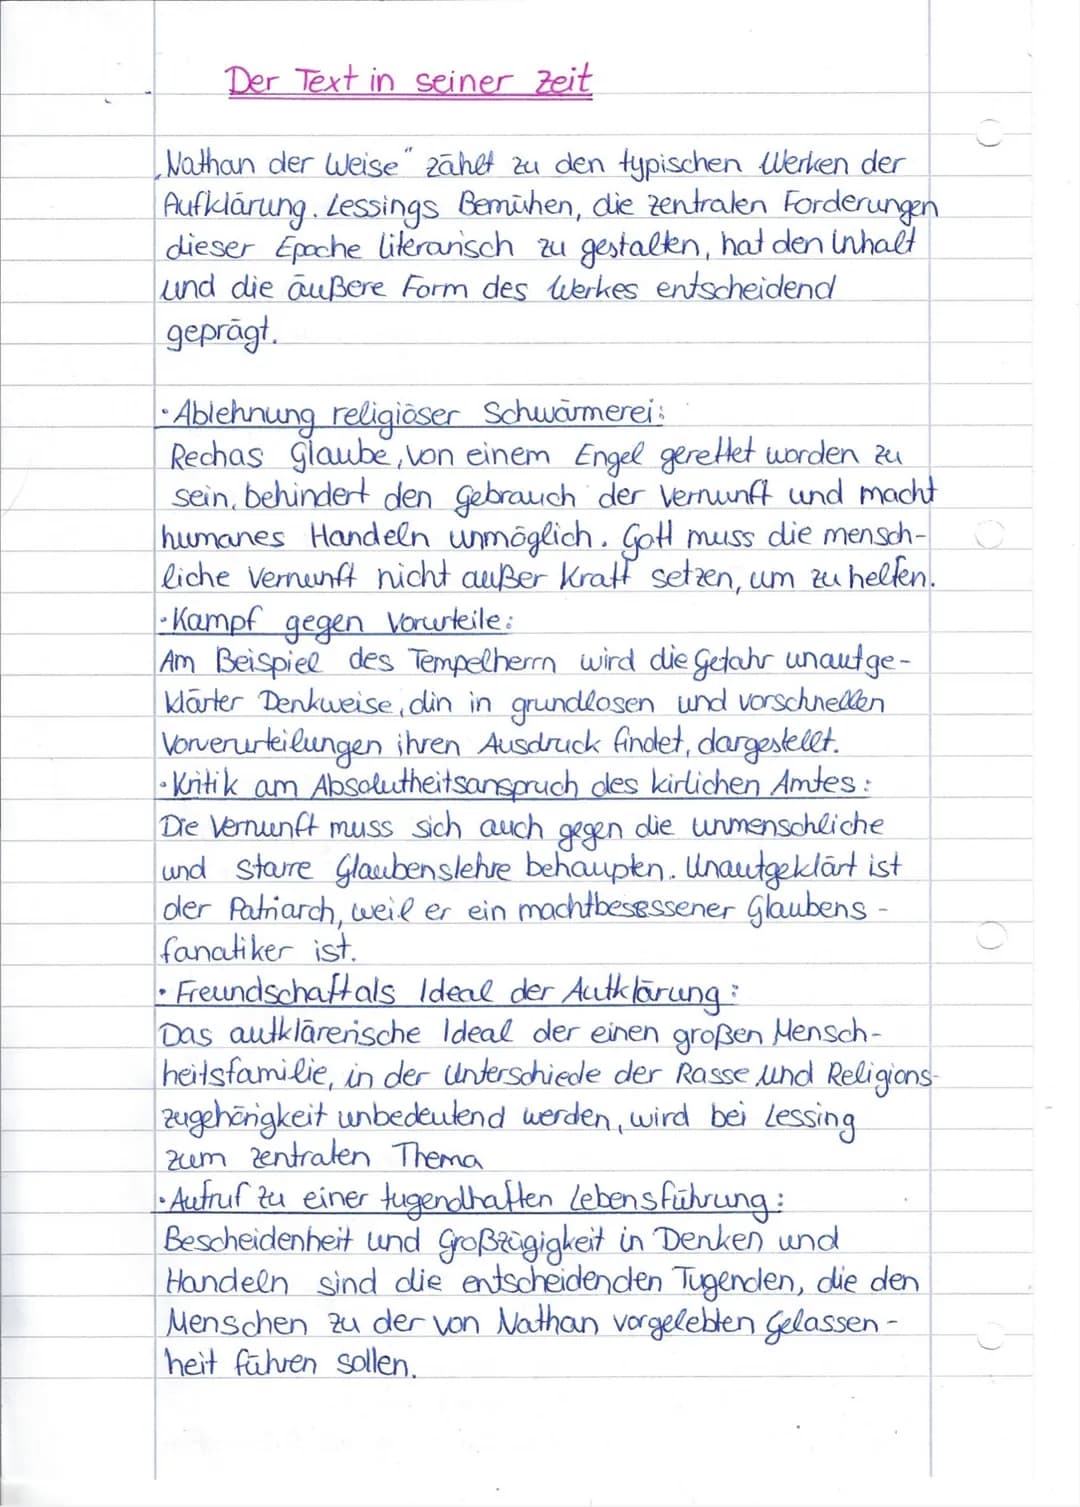 Der Text in seiner Zeit
„Nathan der Weise" zählt zu den typischen Werken der
Aufklärung. Lessings Bemühen, die zentralen Forderungen
dieser Epoche literarisch zu gestalten, hat den Inhalt
und die äußere Form des Werkes entscheidend
geprägt.
• Ablehnung religiöser Schwärmerei:
Rechas Glaube, von einem Engel gerettet worden zu
sein, behindert den Gebrauch der Vernunft und macht
humanes Handeln unmöglich. Gott muss die mensch-
liche Vernunft nicht außer Kraft setzen, um zu helfen.
• Kampf gegen Vorurteile:
Am Beispiel des Tempelherrn wird die Gefahr unaufge-
klärter Denkweise, din in grundlosen und vorschnellen
Vorverurteilungen ihren Ausdruck findet, dargestellt.
• Kritik am Absolutheitsanspruch des kirlichen Amtes:
Die Vernunft muss sich auch gegen die unmenschliche
und starre Glaubenslehre behaupten. Unaufgeklärt ist
der Patriarch, weil er ein machtbesessener Glaubens-
fanatiker ist.
• Freundschaft als Ideal der Aufklärung:
Das aufklärerische Ideal der einen großen Mensch-
heitsfamilie, in der Unterschiede der Rasse und Religions-
zugehörigkeit unbedeutend werden, wird bei Lessing
zum zentralen Thema
• Aufruf zu einer tugendhaften Lebensführung:
Bescheidenheit und Großzügigkeit in Denken und
Handeln sind die entscheidenden Tugenden, die den
Menschen zu der von Nathan vorgelebten Gelassen-
heit führen sollen.